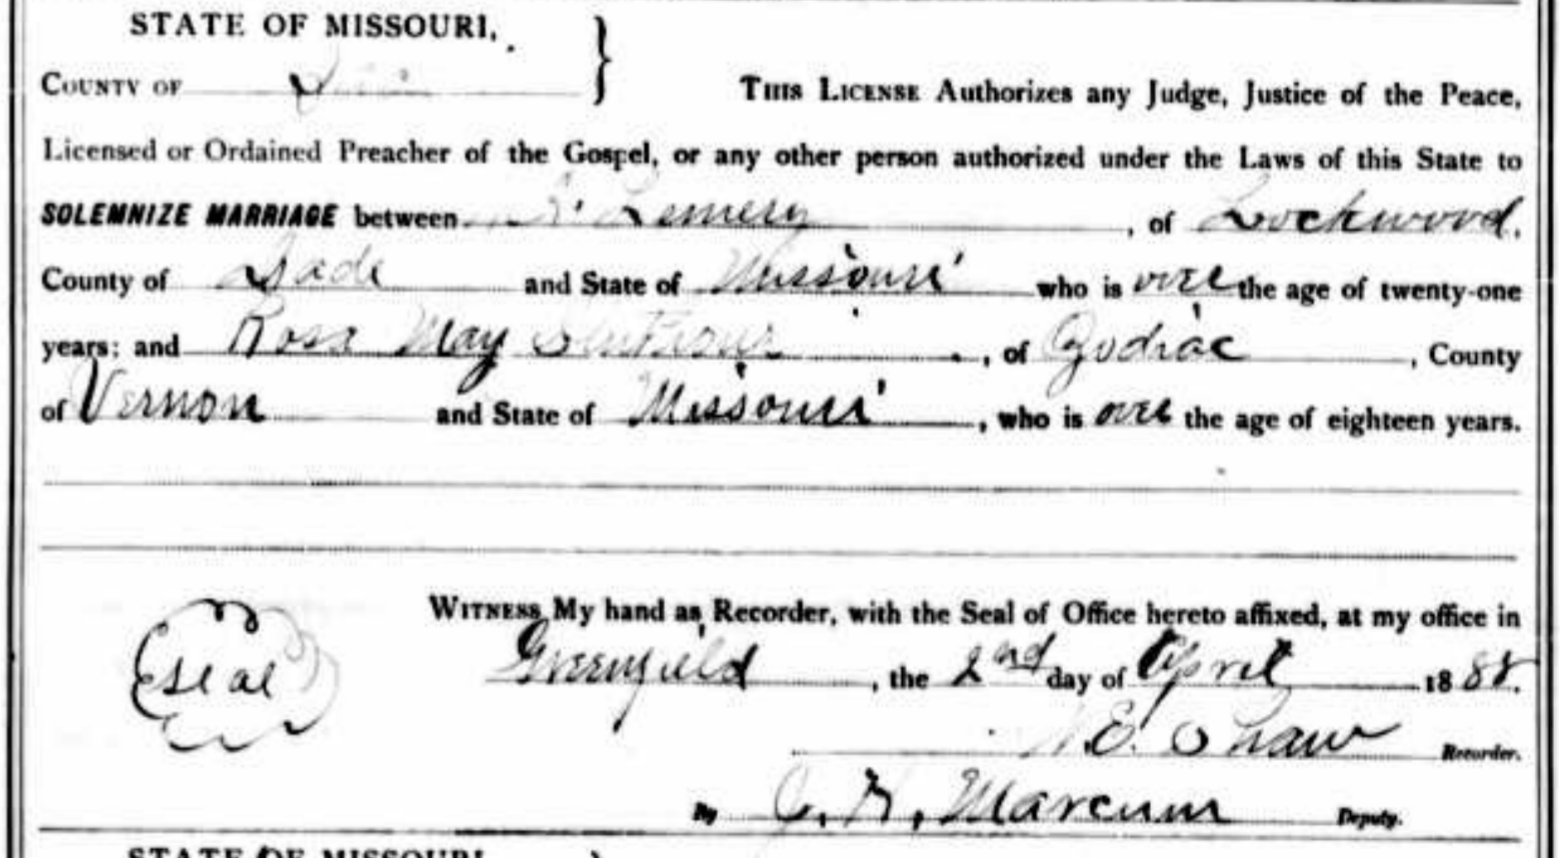 STATE OF MISSOURI,
COUNTY OF
THIS LICENSE Authorizes any Judge, Justice of the Peace,
Licensed or Ordained Preacher of the Gospel, or any other person authorized under the Laws of this State to
SOLEMNIZE MARRIAGE between Lemery, of Lockwood,
County of Dade and State of Missouri who is over the age of twenty-one
years; and Rosa May, of Zodiac, County
of Vernon and State of Missouri, who is over the age of eighteen years.
WITNESS My hand as Recorder, with the Seal of Office hereto affixed, at my office in
Seal
Greenfield, the 2nd day of April 1888.
E. Shaw Recorder.
By J. H. Marcum Deputy.
STATE OF MISSOURI